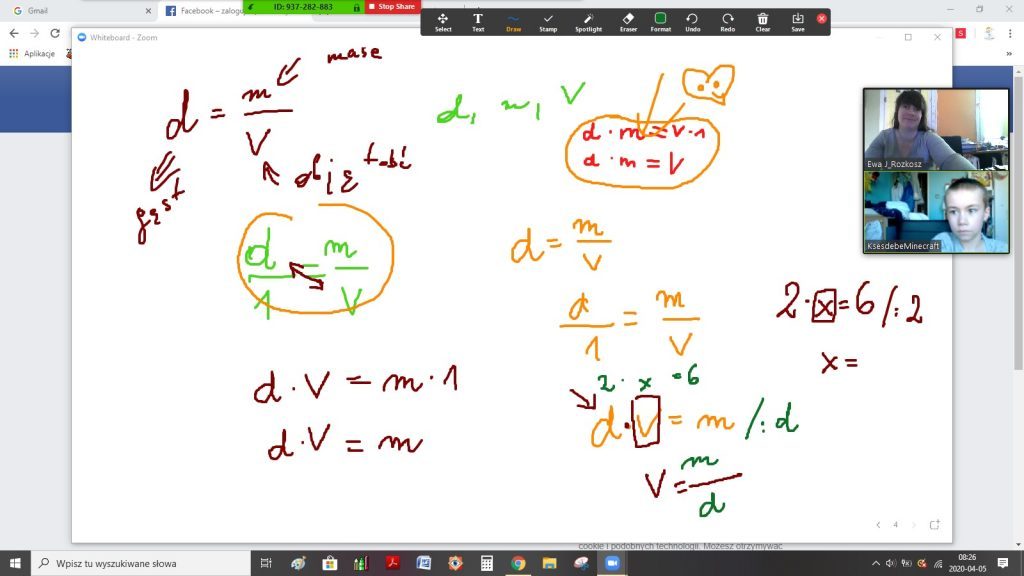 Gmail
Facebook – zalogu
ID: 937-282-883
Stop Share
Aplikacje
Select
Text
Draw
Stamp
Spotlight
Eraser
Format
Undo
Redo
Clear
Save
Whiteboard - Zoom
mase
d = m/V
objętość
gęst
d, m, V
d · m = V · 1
d · m = V
d/1 = m/V
d · V = m · 1
d · V = m
d = m/V
d/1 = m/V
2 · x = 6
d · V = m /: d
V = m/d
2 · x = 6 /: 2
x =
Ewa J_Rozkosz
KsesdebeMinecraft
4
cookie i podobnych technologii. Możesz otrzymywać
Wpisz tu wyszukiwane słowa
08:26
2020-04-05